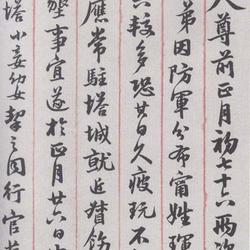 人尊前正月初七十六兩
弟因防軍分布甯姓琿
六較多恐廿日久疲玩不
應常駐塔城就近督飭
壑事宜遂於正月廿六日
塔小妾幼女挈之同行官